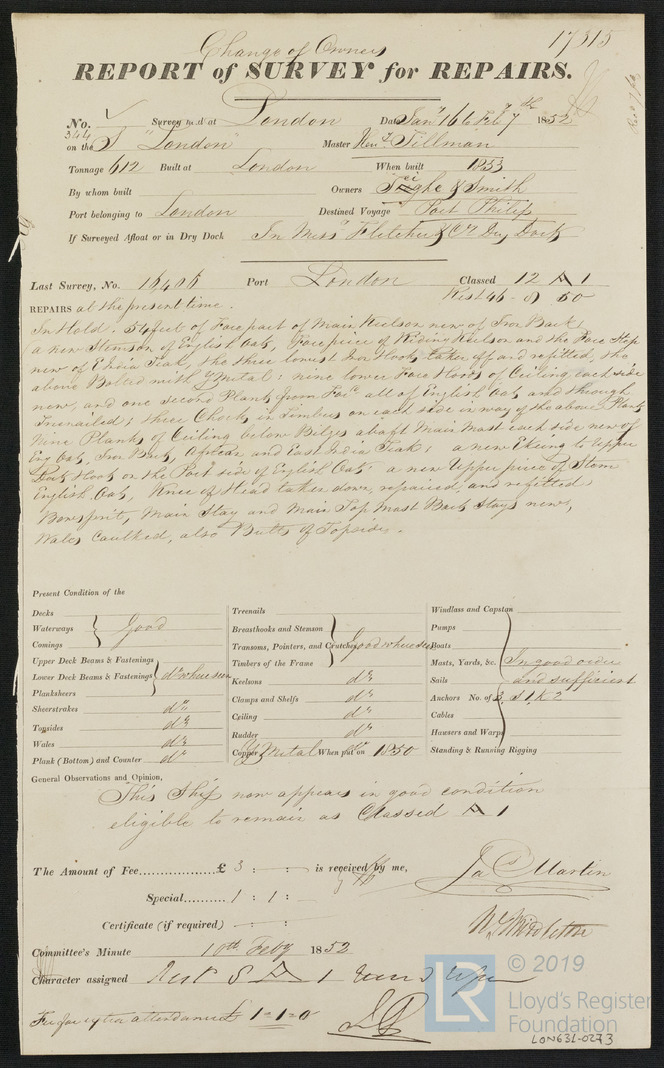 Change of Owners 17315
REPORT of SURVEY for REPAIRS.
No. 344 Survey held at London Date Jany 16 to Feby 7th 1852
on the S "London" Master Tillman
Tonnage 612 Built at London When built
By whom built Owners & Smith
Port belonging to London Destined Voyage Port Philip
If Surveyed Afloat or in Dry Dock In Messrs Fletcher & Co Dry Dock
Last Survey, No. Port London Classed 12 A 1
Rest 46 - 8 50
REPAIRS at the present time.
In Hold. 54 feet of Face part of Main Keelson new of Iron Bark
a new Stemson of English Oak, Facepiece of Riding Keelson and the Face Step
new of E India Teak, the three lowest Iron Hooks taken off and refitted, the
above Bolted with Y Metal: nine lower Face Hoods of Ceiling each side
new, and one second Plank from all of English Oak and through
Treenailed; three Chocks in Timbers on each side in way of the above Planks
Nine Planks of Ceiling below Bilges abaft Main Mast each side new of
Eng Oak, Iron Bark, African and East India Teak; a new Ekeing to Upper
Deck Hook on the Port side of English Oak; a new Upper piece of Stem
English Oak, Knee of Head taken down, repaired, and refitted
Bowsprit, Main Stay and Main Top Mast Back Stays new,
Wales caulked, also Butts of Topsides.
Present Condition of the
Decks
Waterways Good
Comings
Upper Deck Beams & Fastenings
Lower Deck Beams & Fastenings do where seen
Planksheers
Sheerstrakes do
Topsides do
Wales do
Plank (Bottom) and Counter do
Treenails
Breasthooks and Stemson
Transoms, Pointers, and Crutches Good where seen
Timbers of the Frame
Keelsons do
Clamps and Shelfs do
Ceiling do
Rudder do
Copper Y Metal When put on 1850
Windlass and Capstan
Pumps
Boats
Masts, Yards, &c. In good order
Sails and sufficient
Anchors No. of 3, S 1, K 2
Cables
Hawsers and Warps
Standing & Running Rigging
General Observations and Opinion,
This Ship now appears in good condition
eligible to remain as Classed A 1
The Amount of Fee £ 3 : - : is received by me,
Special 1 : 1 : -
Certificate (if required)
Jas Martin
Wm Middleton
Committee's Minute 10th Feby 1852
Character assigned A 1
Fee for attendance £ 1=1=0
© 2019
LR
Lloyd's Register
Foundation
LON631-0273